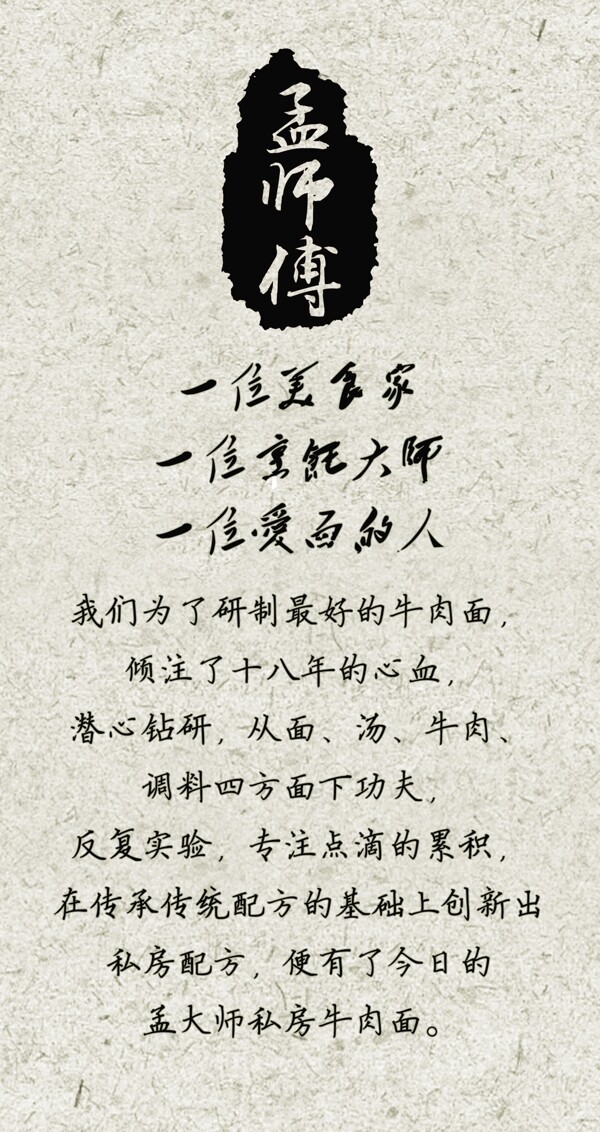 孟师傅
一位美食家
一位烹飪大师
一位愛面的人
我们为了研制最好的牛肉面,
倾注了十八年的心血,
潜心钻研,从面、汤、牛肉、
调料四方面下功夫,
反复实验,专注点滴的累积,
在传承传统配方的基础上创新出
私房配方,便有了今日的
孟大师私房牛肉面。